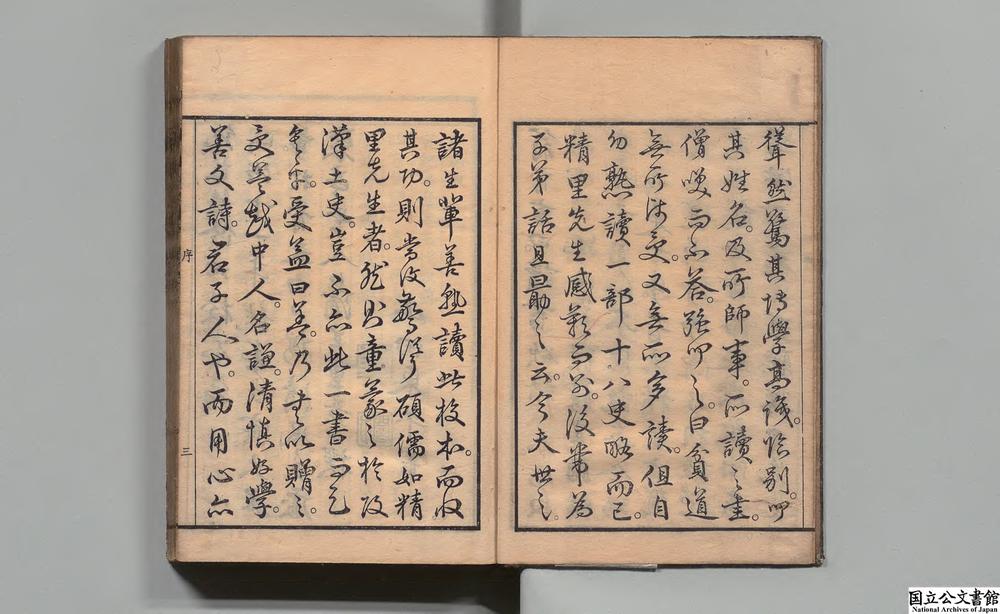 聳然驚其博學高識。臨別。叩
其姓名。及所師事。所讀之書。
僧唉而不答。强叩之。曰貧道
無所師受。又無所多讀。但自
幼熟讀一部十八史略而已。
精里先生感歎而別。後常為
子弟話且勗之云。今夫世之
諸生輩善熟讀此校本。而收
其功。則當政驚得碩儒如精
里先生者。然則童蒙之於
漢土史。豈不亦此一書而足
矣乎。受益曰善。乃書以贈之。
受益越中人。名謙。清慎好學。
善文詩。君子人也。而用心亦
序
三
国立公文書館
National Archives of Japan